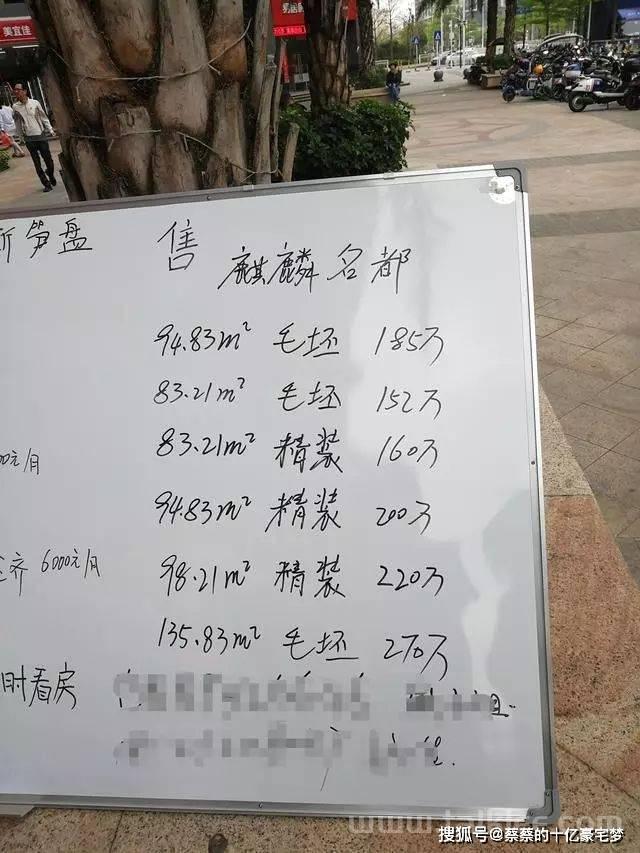 美宜佳
笋盘 售 麒麟名都
94.83m² 毛坯 185万
83.21m² 毛坯 152万
83.21m² 精装 160万
0元/月
94.83m² 精装 200万
齐 6000元/月
98.21m² 精装 220万
135.83m² 毛坯 270万
时看房
搜狐号@蔡蔡的十亿豪宅梦